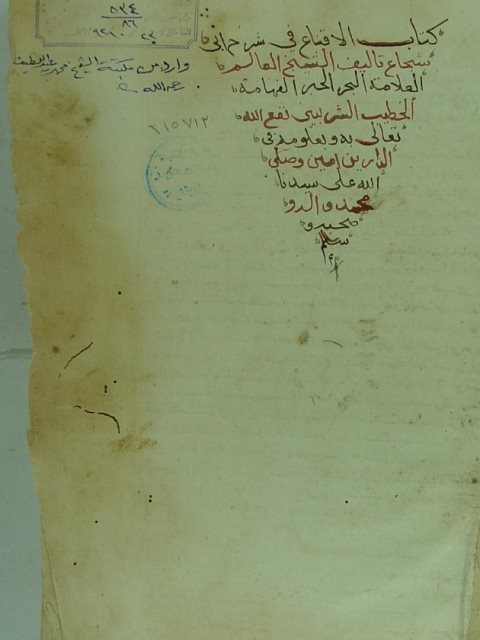 ٨٣٤
٨٦
كتاب الاقناع في شرح ابى
شجاع تاليف الشيخ العالم
العلامة البحر الحبر الفهامة
الخطيب الشربيني نفع الله
تعالى به وبعلومه في
الدارين امين وصلى
الله على سيدنا
محمد واله و
صحبه و
سلم
وارد من مكتبة الشيخ محمد عبد اللطيف
رحمه الله
٢١٥٧١٣